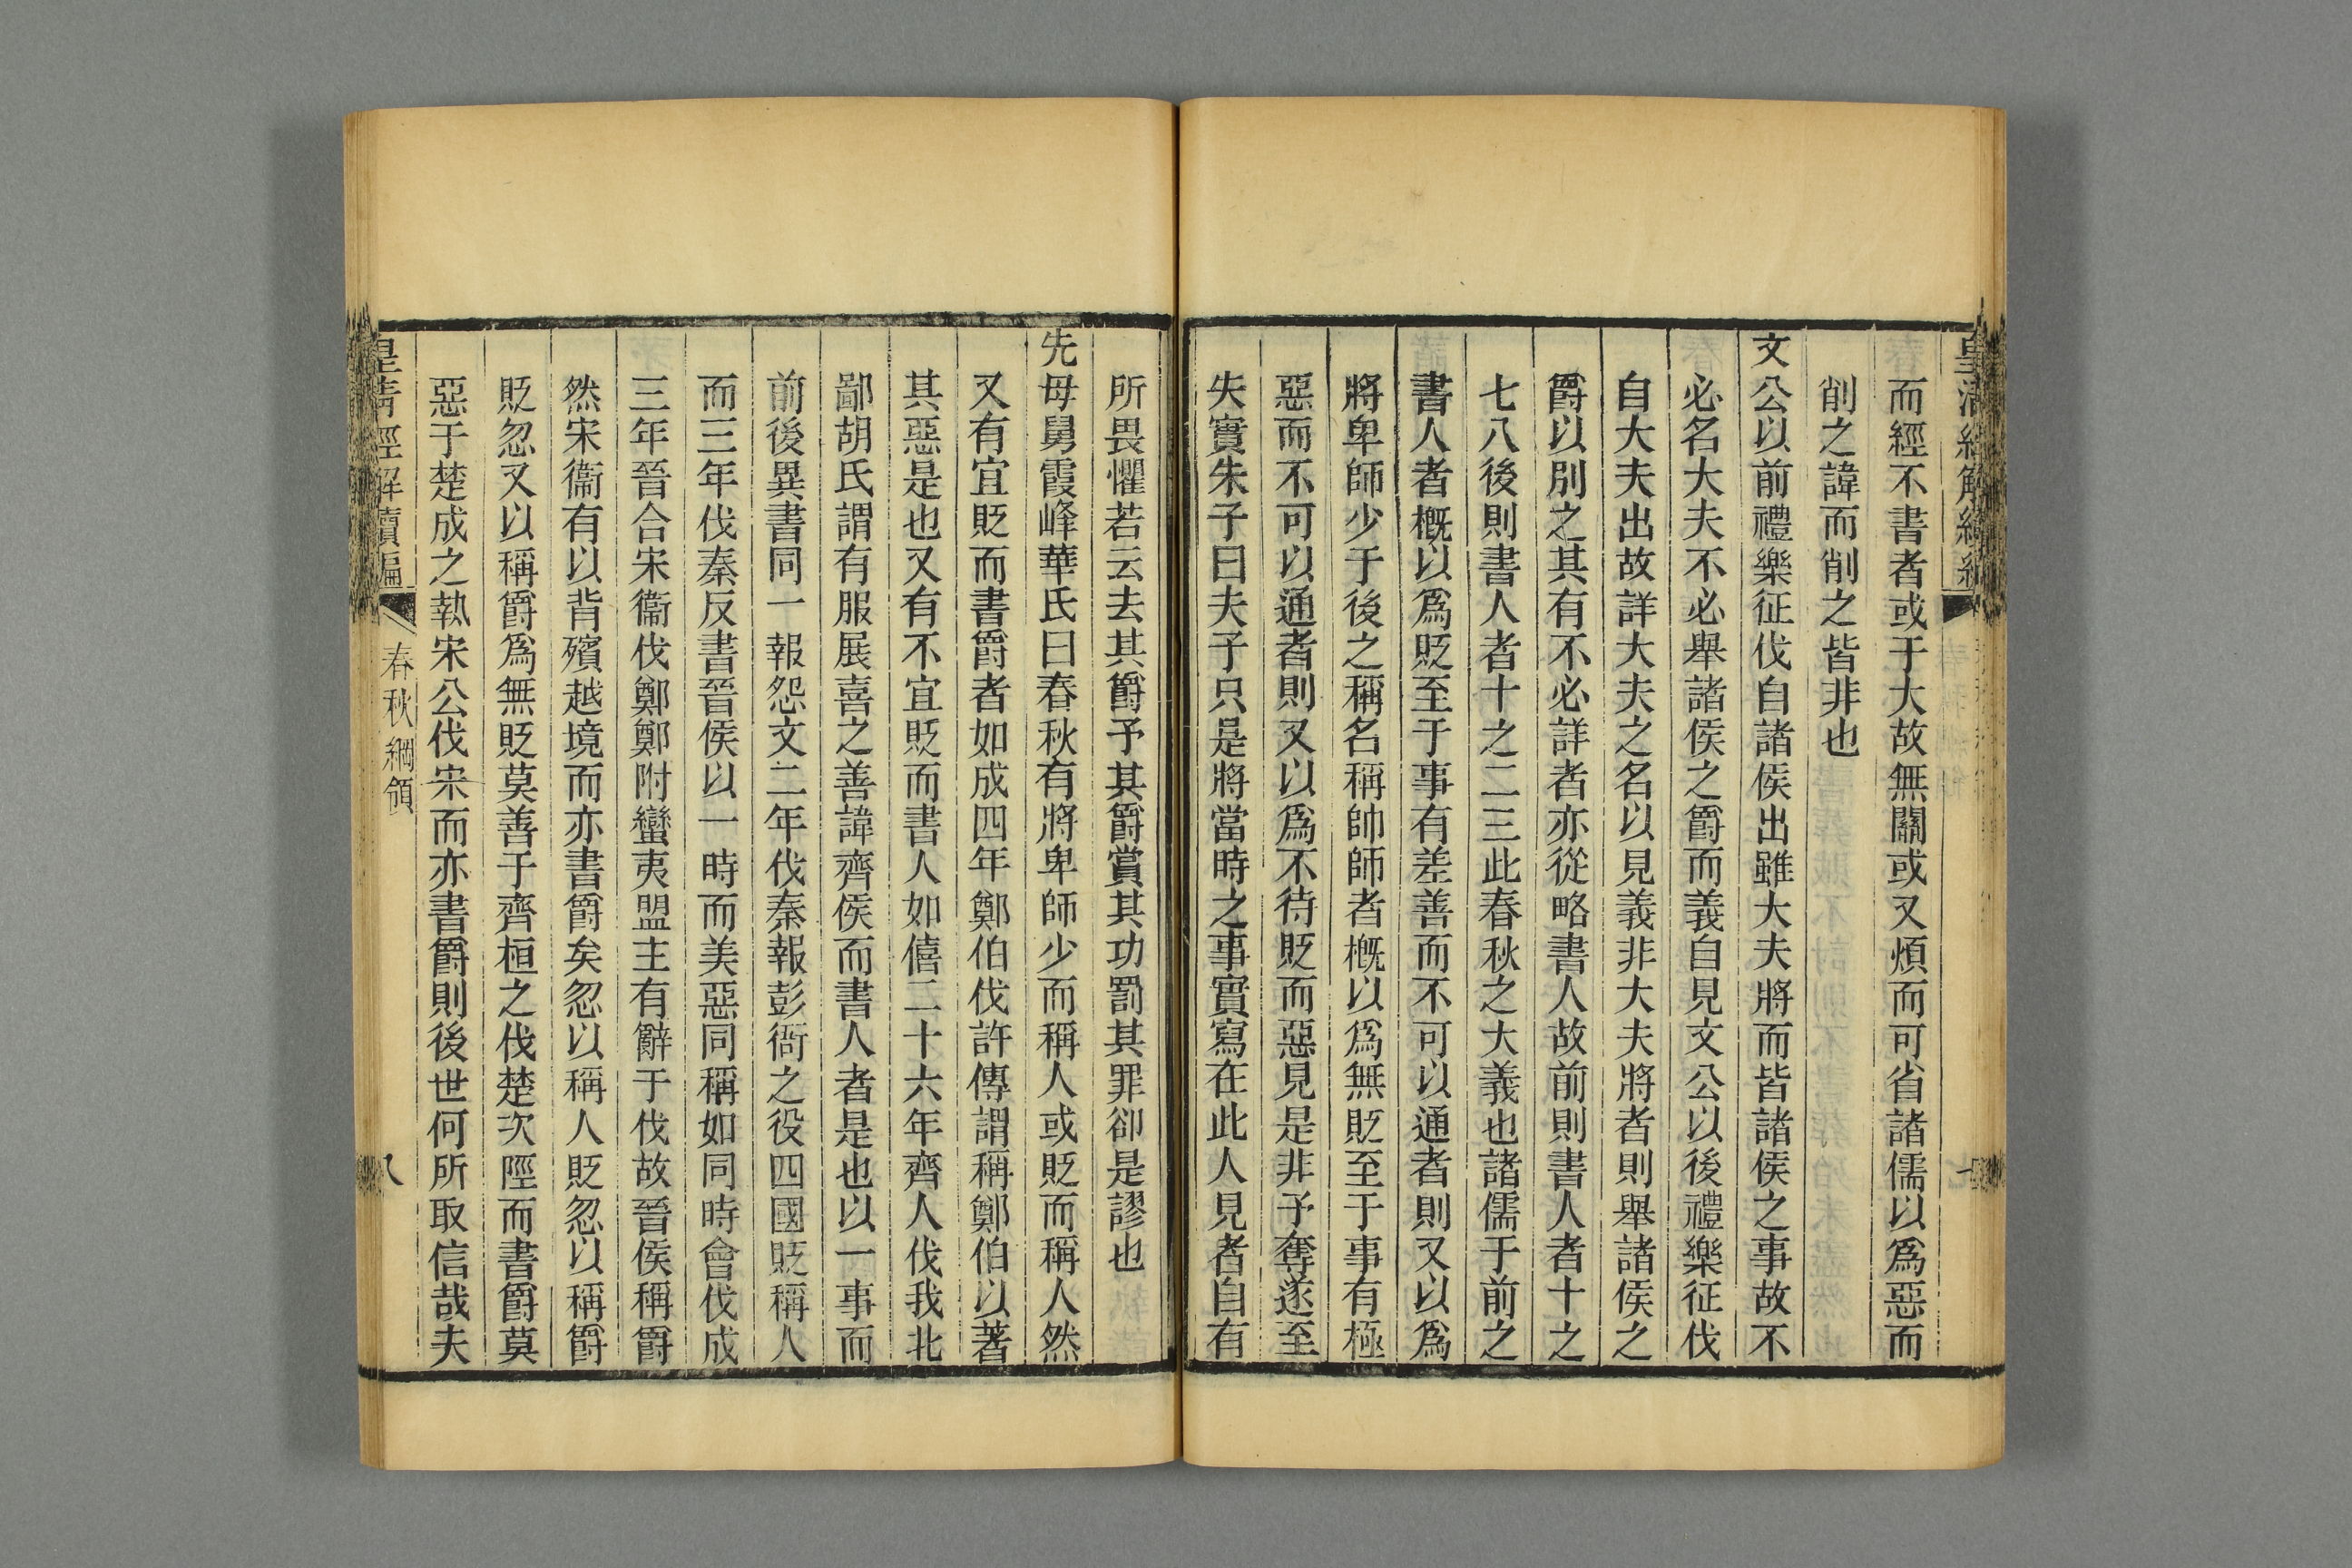 而經不書者或于大故無關或又煩而可省諸儒以爲惡而
削之諱而削之皆非也
文公以前禮樂征伐自諸侯出雖大夫將而皆諸侯之事故不
必名大夫不必舉諸侯之爵而義自見文公以後禮樂征伐
自大夫出故詳大夫之名以見義非大夫將者則舉諸侯之
爵以別之其有不必詳者亦從略書人故前則書人者十之
七八後則書人者十之二三此春秋之大義也諸儒于前之
書人者概以爲貶至于事有差善而不可以通者則又以爲
將卑師少于後之稱名稱帥師者概以爲無貶至于事有極
惡而不可以通者則又以爲不待貶而惡見是非予奪遂至
失實朱子曰夫子只是將當時之事實寫在此人見者自有
所畏懼若云去其爵予其爵賞其功罰其罪卻是謬也
先母舅霞峰華氏曰春秋有將卑師少而稱人或貶而稱人然
又有宜貶而書爵者如成四年鄭伯伐許傳謂稱鄭伯以著
其惡是也又有不宜貶而書人如僖二十六年齊人伐我北
鄙胡氏謂有服展喜之善諱齊侯而書人者是也以一事而
前後異書同一報怨文二年伐秦報彭衙之役四國貶稱人
而三年伐秦反書晉侯以一時而美惡同稱如同時會伐成
三年晉合宋衞伐鄭鄭附蠻夷盟主有辭于伐故晉侯稱爵
然宋衞有以背殯越境而亦書爵矣忽以稱人貶忽以稱爵
貶忽又以稱爵爲無貶莫善于齊桓之伐楚次陘而書爵莫
惡于楚成之執宋公伐宋而亦書爵則後世何所取信哉夫
皇清經解續編
春秋綱領
八